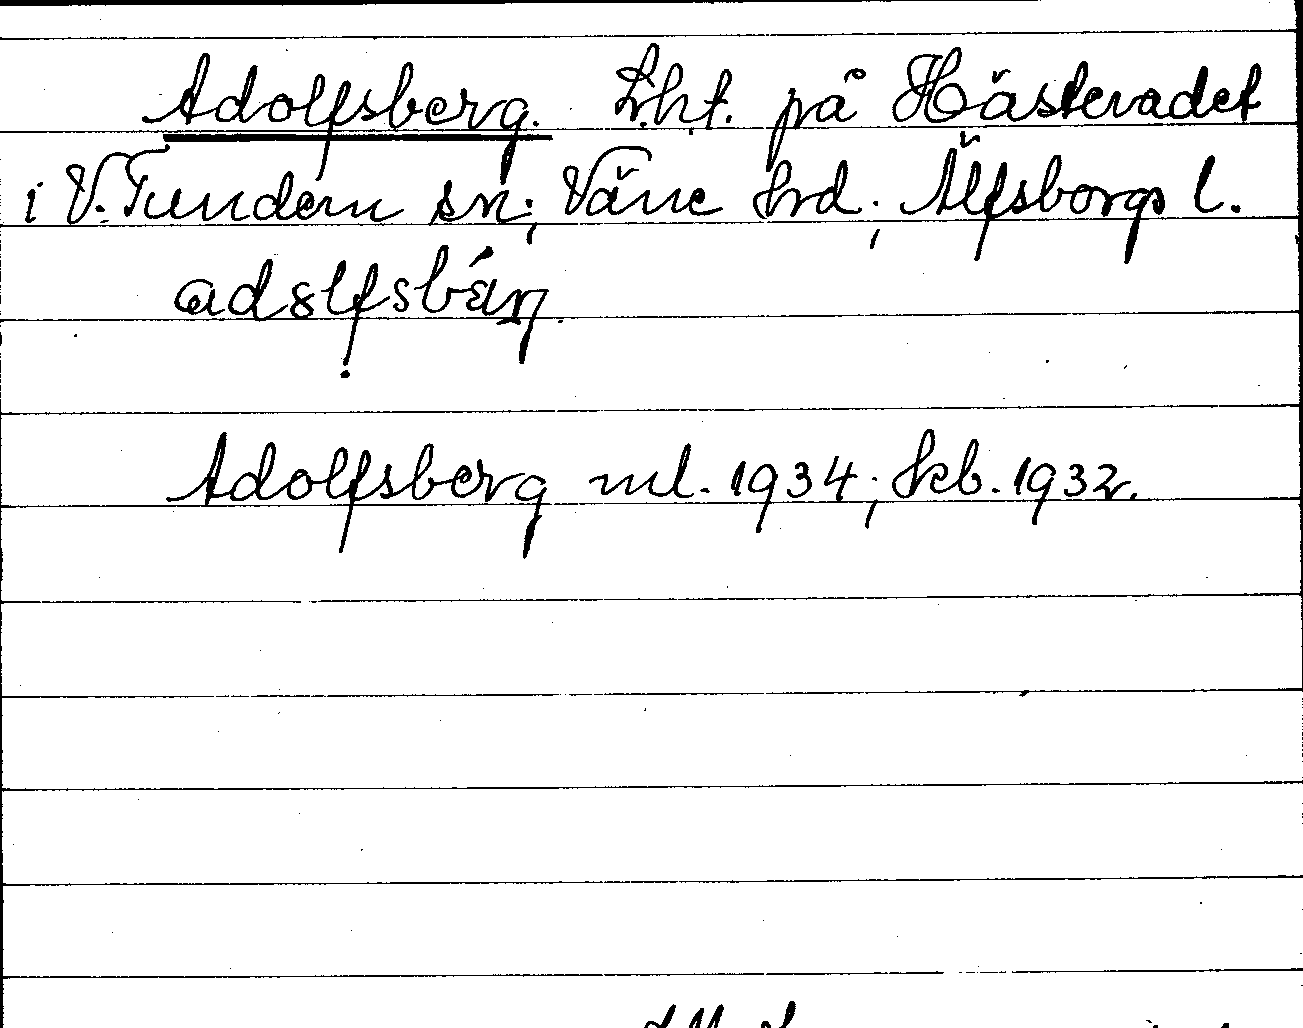 Adolfsberg. Lht. på Hästevadet
i V. Tunhem sn; Väne hrd; Älfsborgs l.
Adolfsberg ml. 1934; kb. 1932.